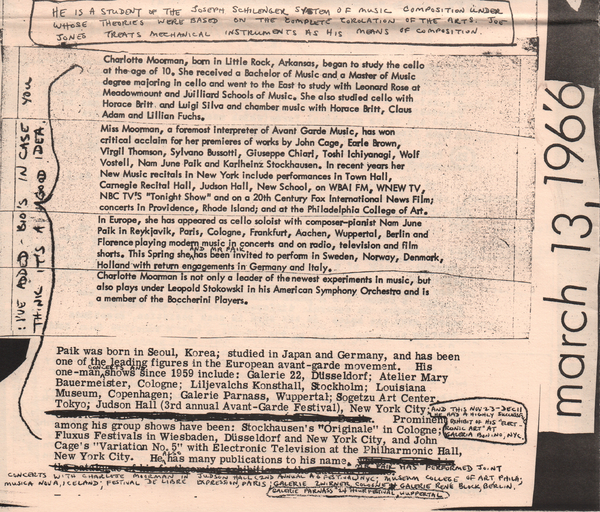 HE IS A STUDENT OF THE JOSEPH SCHILENGER SYSTEM OF MUSIC COMPOSITION UNDER
WHOSE THEORIES WERE BASED ON THE COMPLETE COROLATION OF THE ARTS. JOE
JONES TREATS MECHANICAL INSTRUMENTS AS HIS MEANS OF COMPOSITION.
Charlotte Moorman, born in Little Rock, Arkansas, began to study the cello
at the age of 10. She received a Bachelor of Music and a Master of Music
degree majoring in cello and went to the East to study with Leonard Rose at
Meadowmount and Juilliard Schools of Music. She also studied cello with
Horace Britt and Luigi Silva and chamber music with Horace Britt, Claus
Adam and Lillian Fuchs.
Miss Moorman, a foremost interpreter of Avant Garde Music, has won
critical acclaim for her premieres of works by John Cage, Earle Brown,
Virgil Thomson, Sylvano Bussotti, Giuseppe Chiari, Toshi Ichiyanagi, Wolf
Vostell, Nam June Paik and Karlheinz Stockhausen. In recent years her
New Music recitals in New York include performances in Town Hall,
Carnegie Recital Hall, Judson Hall, New School, on WBAI FM, WNEW TV,
NBC TV'S "Tonight Show" and on a 20th Century Fox International News Film;
concerts in Providence, Rhode Island; and at the Philadelphia College of Art.
In Europe, she has appeared as cello soloist with composer-pianist Nam June
Paik in Reykjavik, Paris, Cologne, Frankfurt, Aachen, Wuppertal, Berlin and
Florence playing modern music in concerts and on radio, television and film
AND MR PAIK
shorts. This Spring she has been invited to perform in Sweden, Norway, Denmark,
Holland with return engagements in Germany and Italy.
Charlotte Moorman is not only a leader of the newest experiments in music, but
also plays under Leopold Stokowski in his American Symphony Orchestra and is
a member of the Boccherini Players.
: I'VE ADDED - BIO'S IN CASE YOU
THINK IT'S A GOOD IDEA
march 13, 1966
Paik was born in Seoul, Korea; studied in Japan and Germany, and has been
one of the leading figures in the European avant-garde movement. His
CONCERTS AND
one-man shows since 1959 include: Galerie 22, Düsseldorf; Atelier Mary
Bauermeister, Cologne; Liljevalchs Konsthall, Stockholm; Louisiana
Museum, Copenhagen; Galerie Parnass, Wuppertal; Sogetzu Art Center,
Tokyo; Judson Hall (3rd annual Avant-Garde Festival), New York City;
AND THIS NOV 23-DEC 11
HE HAD A HIGHLY
EXHIBIT OF HIS "ELECT-
RONIC ART" AT
GALERIA BONINO, NYC.
Prominent
among his group shows have been: Stockhausen's "Originale" in Cologne;
Fluxus Festivals in Wiesbaden, Düsseldorf and New York City, and John
Cage's "Variation No. 5" with Electronic Television at the Philharmonic Hall,
ALSO
New York City. He has many publications to his name.
MR PAIK HAS PERFORMED JOINT
CONCERTS WITH CHARLOTTE MOORMAN IN JUDSON HALL (2ND ANNUAL AG FESTIVAL) NYC; MUSEUM COLLEGE OF ART, PHILA;
MUSICA NOVA, ICELAND; FESTIVAL DE LIBRE EXPRESSION, PARIS; GALERIE ZWIRNER COLOGNE; GALERIE RENÉ BLOCK, BERLIN,
GALERIE PARNASS 24 HOUR FESTIVAL, WUPPERTAL.